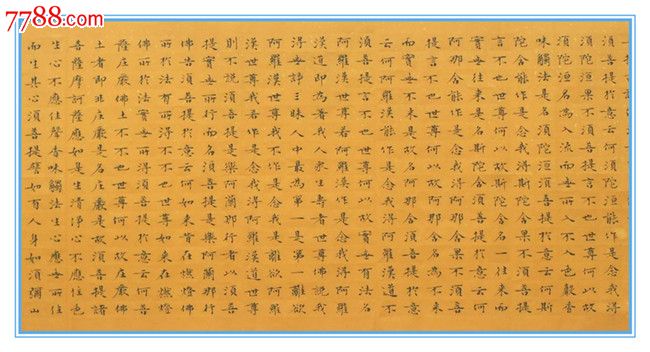 7788.com
须菩提於意云何須陀洹能作是念我得
須陀洹果不須菩提言不也世尊何以故
須陀洹名為入流而無所入不入色聲香
味觸法是名須陀洹須菩提於意云何斯
陀含能作是念我得斯陀含果不須菩提
言不也世尊何以故斯陀含名一往來而
實無往來是名斯陀含須菩提於意云何
阿那含能作是念我得阿那含果不須菩
提言不也世尊何以故阿那含名為不來
而實無不來是故名阿那含須菩提於意
云何阿羅漢能作是念我得阿羅漢道不
須菩提言不也世尊何以故實無有法名
阿羅漢世尊若阿羅漢作是念我得阿羅
漢道即為著我人眾生壽者世尊佛說我
得無諍三昧人中最為第一是第一離欲
阿羅漢世尊我不作是念我是離欲阿羅
漢世尊我若作是念我得阿羅漢道世尊
則不說須菩提是樂阿蘭那行者以須菩
提實無所行而名須菩提是樂阿蘭那行
佛告須菩提於意云何如來昔在燃燈佛
所於法有所得不不也世尊如來在燃燈
佛所於法實無所得須菩提於意云何菩
薩莊嚴佛土不不也世尊何以故莊嚴佛
土者即非莊嚴是名莊嚴是故須菩提諸
菩薩摩訶薩應如是生清淨心不應住色
生心不應住聲香味觸法生心應無所住
而生其心須菩提譬如有人身如須彌山